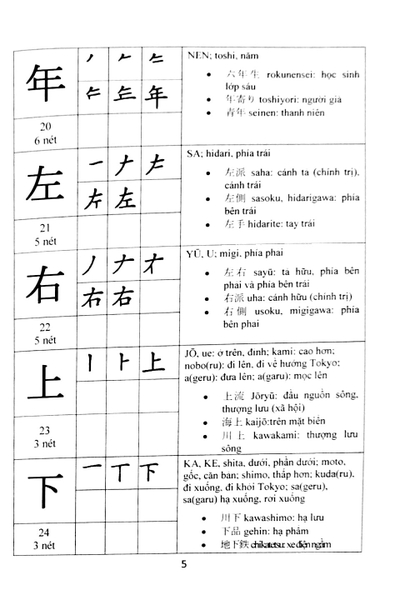 年
20
6 nét
NEN; toshi, năm
六年生 rokunensei: học sinh
lớp sáu
年寄り toshiyori: người già
青年 seinen: thanh niên
左
21
5 nét
SA; hidari, phía trái
左派 saha: cánh tả (chính trị),
cánh trái
左側 sasoku, hidarigawa: phía
bên trái
左手 hidarite: tay trái
右
22
5 nét
YŪ, U; migi, phía phai
左右 sayū: tả hữu, phía bên
phai và phía bên trái
右派 uha: cánh hữu (chính trị)
右側 usoku, migigawa: phía
bên phai
上
23
3 nét
JŌ, ue: ở trên, đỉnh; kami: cao hơn;
nobo(ru): đi lên, đi về hướng Tokyo;
a(geru): đưa lên; a(garu): mọc lên
上流 Jōryū: đầu nguồn sông,
thượng lưu (xã hội)
海上 kaijō:trên mặt biển
川上 kawakami: thượng lưu
sông
下
24
3 nét
KA, KE, shita, dưới, phần dưới; moto,
gốc, căn ban; shimo, thấp hơn; kuda(ru).
đi xuống, đi khỏi Tokyo; sa(geru),
sa(garu) hạ xuống, rơi xuống
川下 kawashimo: hạ lưu
下品 gehin: hạ phẩm
地下鉄 chikatetsu: xe điện ngầm
5